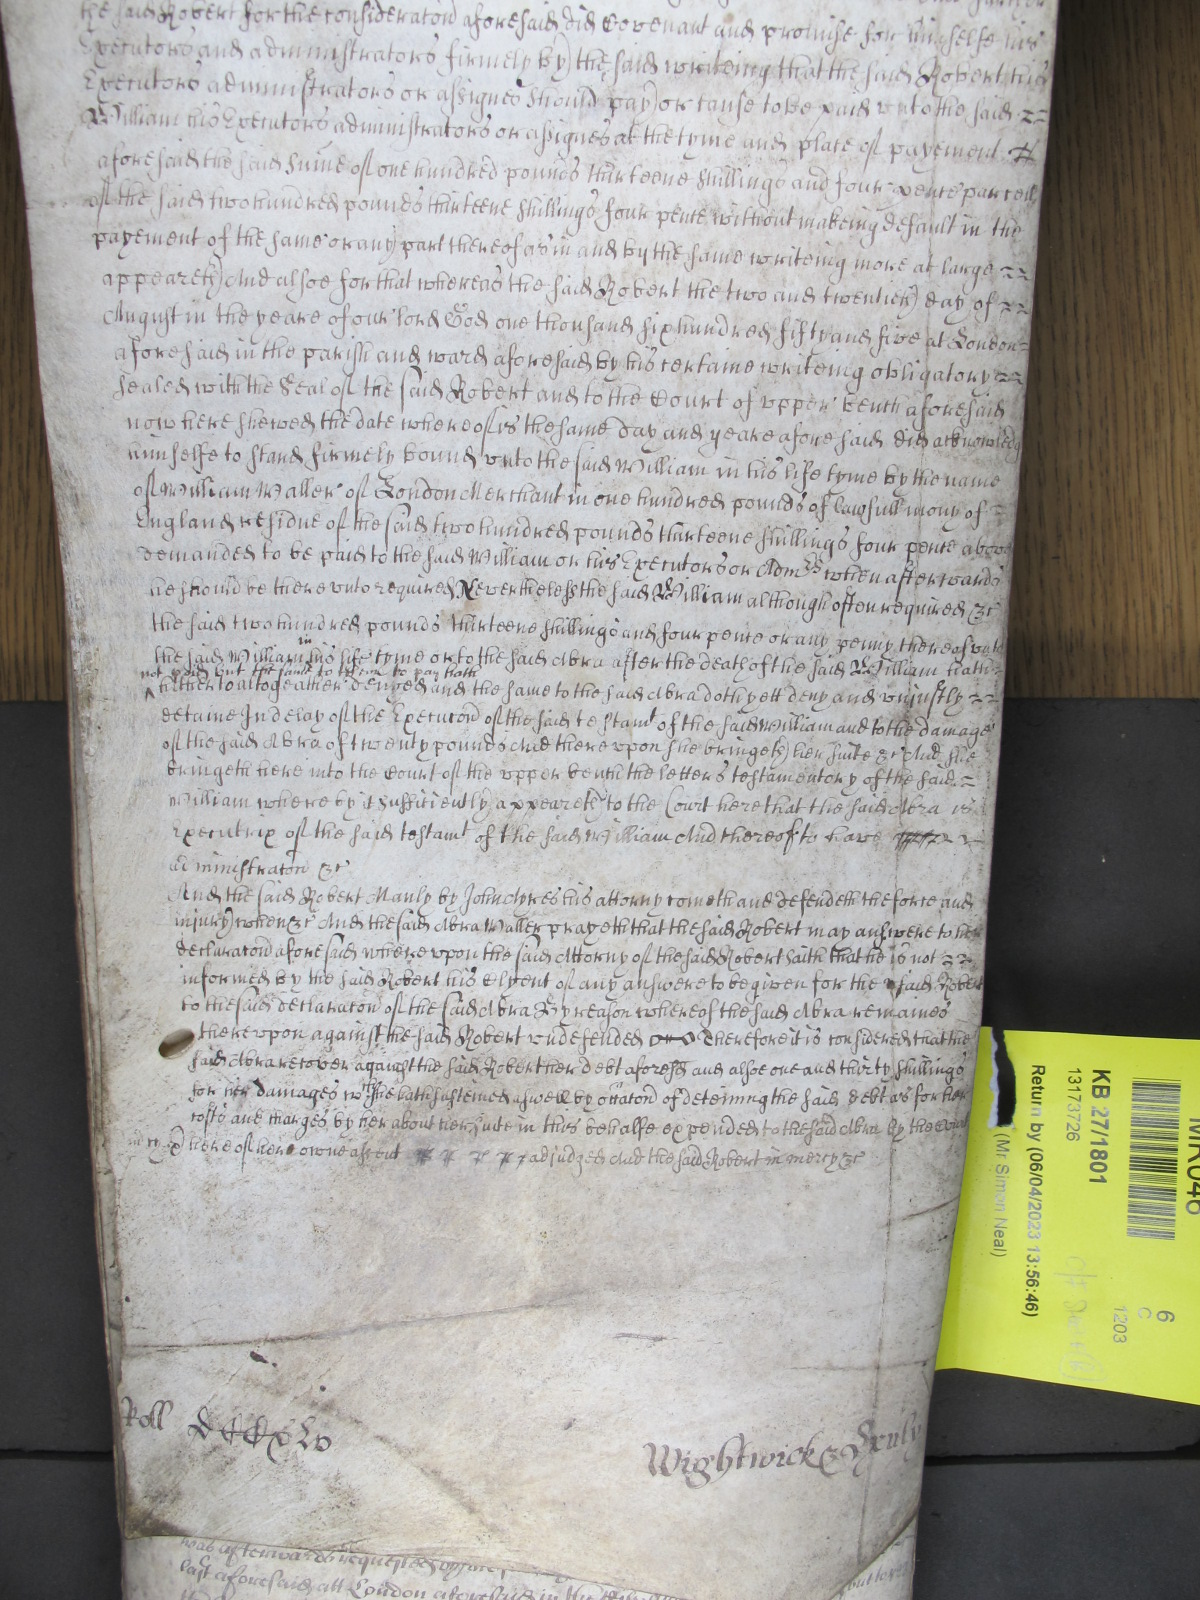 the said Robert for the consideracon aforesaid did Covenant and promise for himselfe his
Executors and administrators firmely by the said writeing that the said Robert his
Executors administrators or assignes should pay or cause to be paid unto the said
William his Executors administrators or assignes at the tyme and place of payement
aforesaid the said sume of one hundred pounds thirteene shillings and four pence parcell
of the said two hundred pounds thirteene shillings four pence without makeing default in the
payement of the same or any part thereof as in and by the same writeing more at large
appeareth And alsoe for that whereas the said Robert the two and twentieth day of
August in the yeare of our lord God one thousand six hundred fifty and five at London
aforesaid in the parish and ward aforesaid by his certaine writeing obligatory
sealed with the Seal of the said Robert and to the Court of upper bench aforesaid
now here shewed the date whereof is the same day and yeare aforesaid did acknowledg
himselfe to stand firmely bound unto the said William in his life tyme by the name
of William Waller of London Merchant in one hundred pounds of lawfull mony of
England residue of the said two hundred pounds thirteene shillings four pence above
demanded to be paid to the said William or his Executors or Admrs when afterwards
he should be thereunto required Neverthelesse the said William although often required &c
the said two hundred pounds thirteene shillings and four pence or any penny thereof unto
the said William in his life tyme or to the said Abra after the death of the said William hath
not paid but the same to them to pay hath
hitherto altogeather denyed and the same to the said Abra doth yett deny and unjustly
detaine In delay of the Execucon of the said testamt of the said William and to the damage
of the said Abra of twenty pounds And thereupon she bringeth her suite &c And she
bringeth here into the Court of the upper bench the letters testamentory of the said
William whereby it sufficiently appeareth to the Court here that the said Abra is
Executrix of the said testamt of the said William And thereof to have
administracon &c
And the said Robert Manly by John Ayres his attorny cometh and defendeth the force and
injury when &c And the said Abra Waller prayeth that the said Robert may answere to her
declaracon aforesaid whereupon the said Attorny of the said Robert saith that he is not
informed by the said Robert his Clyent of any answere to be given for the said Robert
to the said declaracon of the said Abra By reason whereof the said Abra remaines
thereupon against the said Robert undefended Therefore it is considered that the
said Abra recover against the said Robert her debt aforesd and alsoe one and thirty shillings
for her damages wch she hath susteined aswell by occacon of deteining the said debt as for her
costs and charges by her about her suite in this behalfe expended to the said Abra by the Court
here of her owne assent adjudged And the said Robert in mercy &c
Roll
Wightwick &
was afterwards requested
last aforesaid att London aforesaid in the
KB 27/1801
13173726
Return by (06/04/2023 13:56:46)
(Mr Simon Neal)
6
C
1203